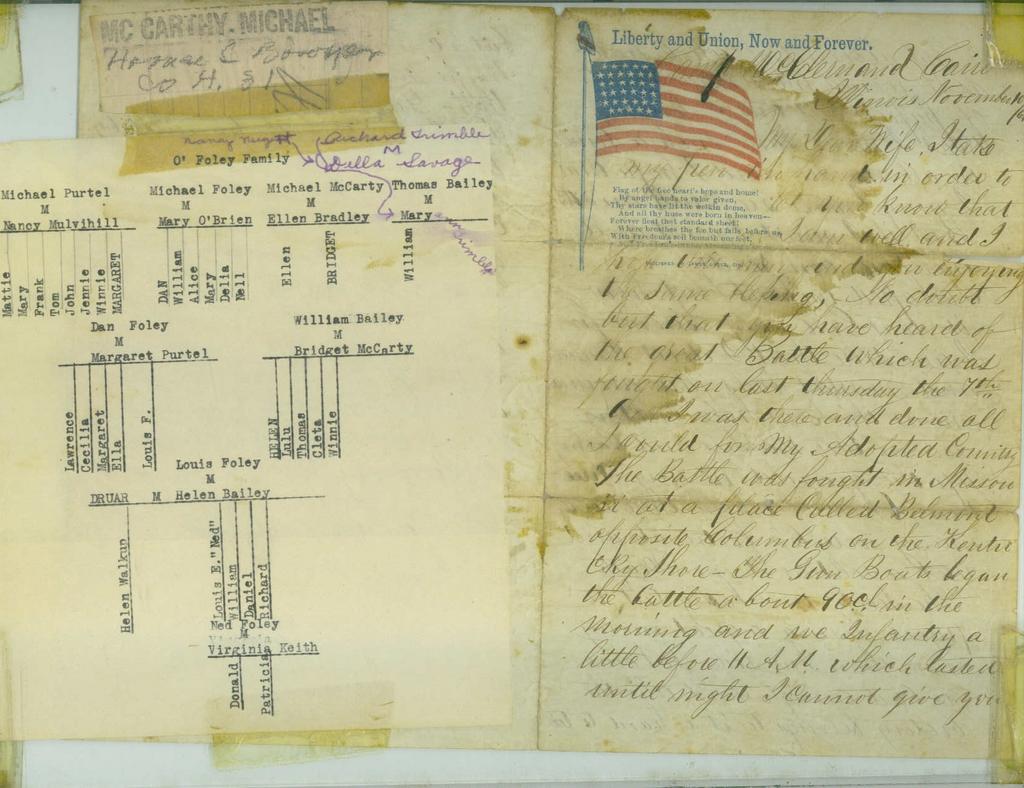 MC CARTHY. MICHAEL
Co H. 31
Richard Trimble
O' Foley Family
M
Della Savage
Michael Purtel
M
Nancy Mulvihill
Michael Foley
M
Mary O'Brien
Michael McCarty
M
Ellen Bradley
Thomas Bailey
M
Mary
Mattie
Mary
Frank
Tom
John
Jennie
Winnie
MARGARET
DAN
William
Alice
Mary
Delia
Nell
Ellen
BRIDGET
William
Dan Foley
M
Margaret Purtel
William Bailey
M
Bridget McCarty
Lawrence
Cecilia
Margaret
Ella
Louis F.
HELEN
Lulu
Thomas
Cleta
Winnie
Louis Foley
M
DRUAR M Helen Bailey
Helen Walkup
Louis E."Ned"
William
Daniel
Richard
Ned Foley
M
Virginia Keith
Donald
Patricia
Liberty and Union, Now and Forever.
McClernand Cairo
Illinois November 10
My Dear Wife. I take
my pen in hand in order to
know that
I am well and I
you enjoying
the same blessing, No doubt
but that you have heard of
the great Battle which was
fought on last thursday the 7th
I was there and done all
I could for my Adopted Country
The Battle was fought in Missou
ri at a place Called Belmont
opposite Columbus on the Kentu
cky Shore - The Gun Boats began
the battle about 9 Ocl in the
morning and we Infantry a
little before 11 A.M. which lasted
until night I cannot give you
Flag of the free heart's hope and home!
By angel hands to valor given,
Thy stars have lit the welkin dome,
And all thy hues were born in heaven—
Forever float that standard sheet!
Where breathes the foe but falls before us,
With Freedom's soil beneath our feet,